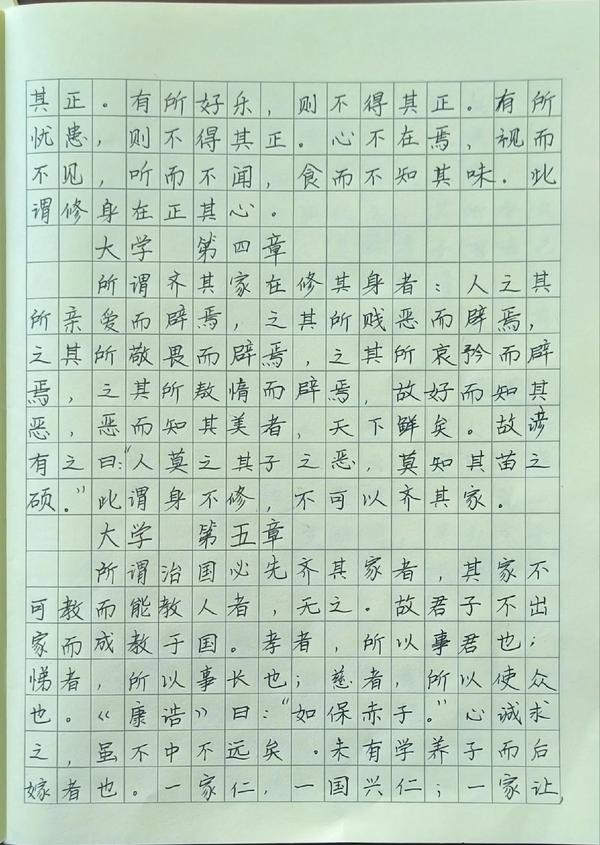 其正。有所好乐，则不得其正。有所
忧患，则不得其正。心不在焉，视而
不见，听而不闻，食而不知其味．此
谓修身在正其心。
大学 第四章
所谓齐其家在修其身者：人之其
所亲爱而辟焉，之其所贱恶而辟焉，
之其所敬畏而辟焉，之其所哀矜而辟
焉，之其所敖惰而辟焉，故好而知其
恶，恶而知其美者，天下鲜矣。故谚
有之曰：“人莫之其子之恶，莫知其苗之
硕。”此谓身不修，不可以齐其家。
大学 第五章
所谓治国必先齐其家者，其家不
可教而能教人者，无之。故君子不出
家而成教于国。孝者，所以事君也；
悌者，所以事长也；慈者，所以使众
也。《康诰》曰：“如保赤子。”心诚求
之，虽不中不远矣。未有学养子而后
嫁者也。一家仁，一国兴仁；一家让，